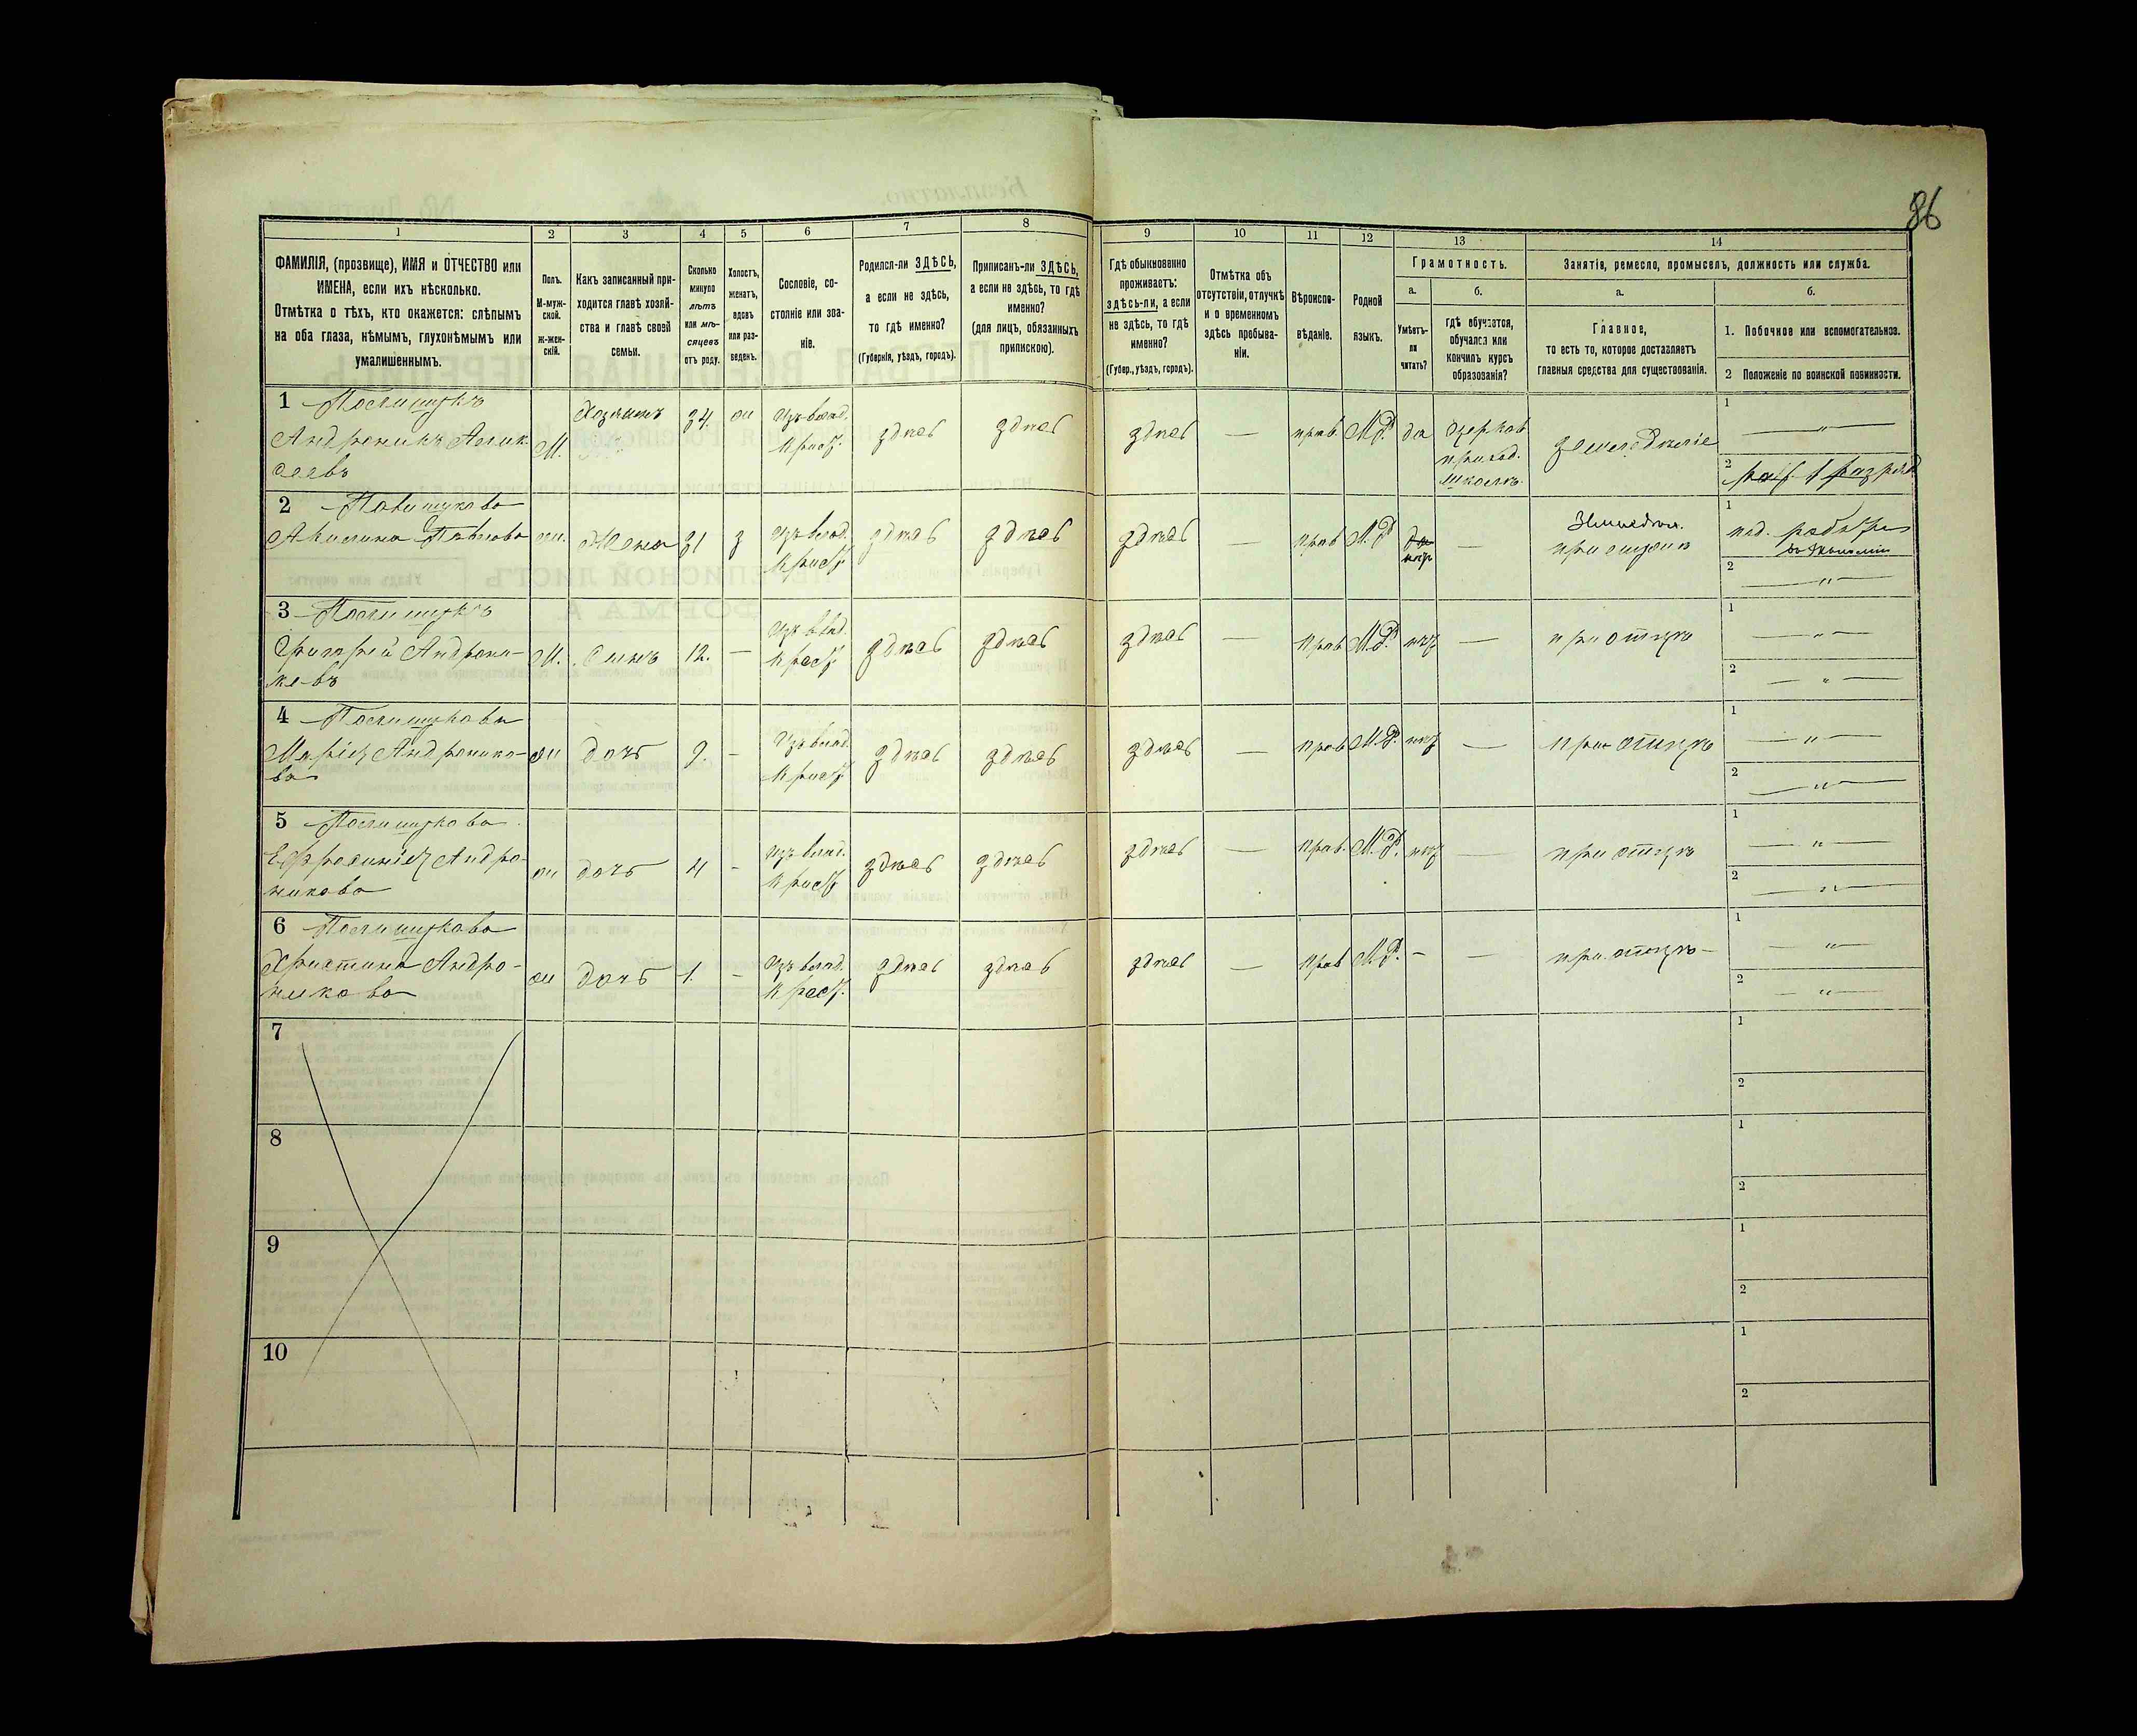 86
1 2 3 4 5 6 7 8 9 10 11 12 13 14
ФАМИЛІЯ, (прозвище), ИМЯ и ОТЧЕСТВО или
ИМЕНА, если ихъ нѣсколько.
Отмѣтка о тѣхъ, кто окажется: слѣпымъ
на оба глаза, нѣмымъ, глухонѣмымъ или
умалишеннымъ.
Полъ.
М-муж-
ской.
ж-жен-
скій.
Какъ записанный при-
ходится главѣ хозяй-
ства и главѣ своей
семьи.
Сколько
минуло
лѣтъ
или мѣ-
сяцевъ
отъ роду.
Холостъ,
женатъ,
вдовъ
или раз-
веденъ.
Сословіе, со-
стояніе или зва-
ніе.
Родился-ли ЗДѢСЬ,
а если не здѣсь,
то гдѣ именно?
(Губернія, уѣздъ, городъ).
Приписанъ-ли ЗДѢСЬ,
а если не здѣсь, то гдѣ
именно?
(для лицъ, обязанныхъ
припискою).
Гдѣ обыкновенно
проживаетъ:
здѣсь-ли, а если
не здѣсь, то гдѣ
именно?
(Губер., уѣздъ, городъ).
Отмѣтка объ
отсутствіи, отлучкѣ
и о временномъ
здѣсь пребыва-
ніи.
Вѣроиспо-
вѣданіе.
Родной
языкъ.
Грамотность.
а.
Умѣетъ-
ли
читать?
б.
гдѣ обучается,
обучался или
кончилъ курсъ
образованія?
Занятіе, ремесло, промыселъ, должность или служба.
а.
Главное,
то есть то, которое доставляетъ
главныя средства для существованія.
б.
1. Побочное или вспомогательное.
2 Положеніе по воинской повинности.
1 Полищукъ
Андроникъ Алик
сеевъ
М. Хозяинъ 34. ж Изъ влад. крест. здѣсь здѣсь здѣсь — прав. М.Р. да церков приход. школѣ земледѣліе
1 — " —
2 рат. 1 разряд
2 Полищукова
Акилина Павлова ж. Жена 31 з Изъ влад. крест. здѣсь здѣсь здѣсь — прав М.Р. да нѣтъ — при мужѣ
1 под. работы
2 — " —
3 Полищукъ
Григорій Андрони-
ковъ
М. сынъ 12. — Изъ влад. крест. здѣсь здѣсь здѣсь — прав М.Р. нѣтъ — при отцѣ
1 — " —
2 — " —
4 Полищукова
Марія Андронико-
ва
ж дочь 9. - Изъ влад. крест. здѣсь здѣсь здѣсь — прав М.Р. нѣтъ — при отцѣ
1 — " —
2 — " —
5 Полищукова
Ефросинія Андро-
никова
ж дочь 4 - Изъ влад. крест. здѣсь здѣсь здѣсь — прав. М.Р. нѣтъ — при отцѣ
1 — " —
2 — " —
6 Полищукова
Христина Андро-
никова
ж дочь 1. - Изъ влад. крест. здѣсь здѣсь здѣсь — прав М.Р. - — при отцѣ
1 — " —
2 — " —
7
1
2
8
1
2
9
1
2
10
1
2